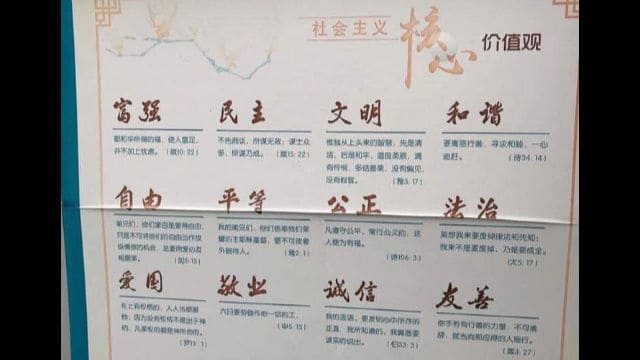 社会主义 核心 价值观
富强
耶和华所赐的福,使人富足,
并不加上忧虑。(箴10:22)
民主
不先商议,所谋无效;谋士众
多,所谋乃成。(箴15:22)
文明
惟独从上头来的智慧,先是清
洁,后是和平,温良柔顺,满
有怜悯,多结善果,没有偏见,
没有假冒。(雅3:17)
和谐
要离恶行善,寻求和睦,一心
追赶。(诗34:14)
自由
弟兄们,你们蒙召是要得自由,
只是不可将你们的自由当作放
纵情欲的机会,总要用爱心互
相服事。(加5:13)
平等
我的弟兄们,你们信奉我们荣
耀的主耶稣基督,便不可按着
外貌待人。(雅2:1)
公正
凡遵守公平,常行公义的,这
人便为有福。(诗106:3)
法治
莫想我来要废掉律法和先知;
我来不是要废掉,乃是要成全。
(太5:17)
爱国
在上有权柄的,人人当顺服
他;因为没有权柄不是出于神
的,凡掌权的都是神所命的。
(罗13:1)
敬业
六日要劳碌作你一切的工。
(申5:13)
诚信
我的言语,要发明心中所存的
正直,我所知道的,我嘴唇要
诚实的说出。(伯33:3)
友善
你手若有行善的力量,不可推
辞,就当向那应得的人施行。
(箴3:27)